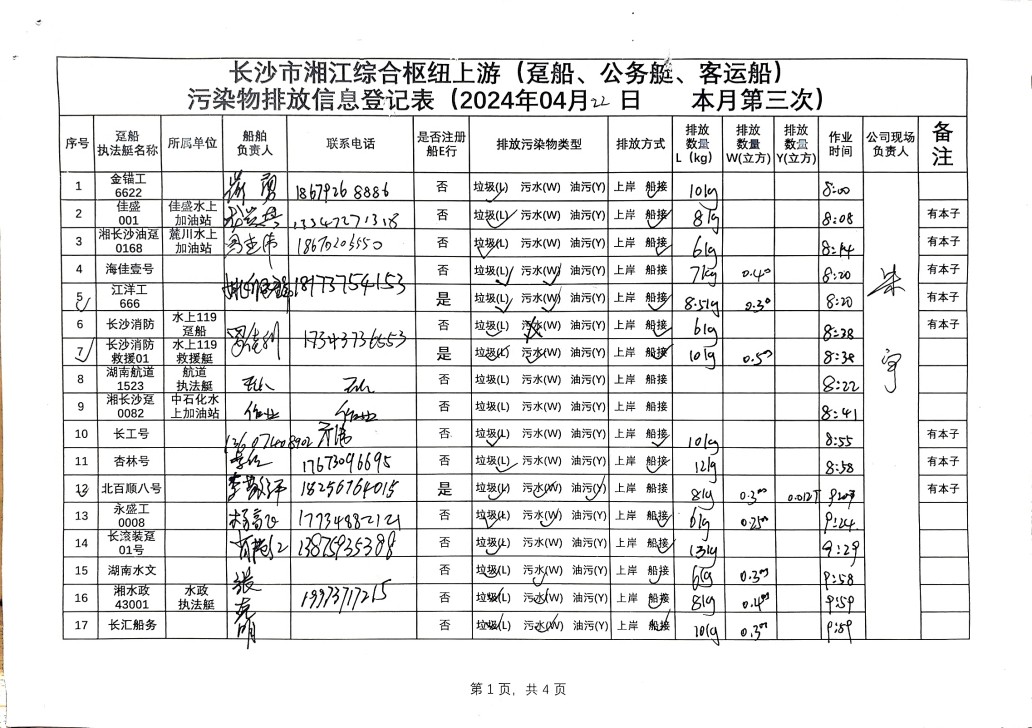 长沙市湘江综合枢纽上游（趸船、公务艇、客运船）
污染物排放信息登记表（2024年04月22日 本月第三次）
序号 趸船执法艇名称 所属单位 船舶负责人 联系电话 是否注册船E行 排放污染物类型 排放方式 排放数量L（kg） 排放数量W(立方) 排放数量Y(立方) 作业时间 公司现场负责人 备注
1 金锚工6622 否 垃圾(L) 污水(W) 油污(Y) 上岸 船接 10kg 8:00
2 佳盛001 佳盛水上加油站 否 垃圾(L) 污水(W) 油污(Y) 上岸 船接 8kg 8:08 有本子
3 湘长沙油趸0168 麓川水上加油站 18670203550 否 垃圾(L) 污水(W) 油污(Y) 上岸 船接 6kg 8:14 有本子
4 海佳壹号 18173754153 否 垃圾(L) 污水(W) 油污(Y) 上岸 船接 7kg 0.4 8:20 有本子
5 江洋工666 是 垃圾(L) 污水(W) 油污(Y) 上岸 船接 8.5kg 0.3 8:20 有本子
6 长沙消防 水上119趸船 17343736553 否 垃圾(L) 污水(W) 油污(Y) 上岸 船接 6kg 8:38 有本子
7 长沙消防救援01 水上119救援艇 是 垃圾(L) 污水(W) 油污(Y) 上岸 船接 10kg 0.5 8:38
8 湖南航道1523 航道执法艇 否 垃圾(L) 污水(W) 油污(Y) 上岸 船接 8:22
9 湘长沙趸0082 中石化水上加油站 作业 作业 否 垃圾(L) 污水(W) 油污(Y) 上岸 船接 8:41
10 长工号 13607408902 否 垃圾(L) 污水(W) 油污(Y) 上岸 船接 10kg 8:55 有本子
11 杏林号 17673096695 否 垃圾(L) 污水(W) 油污(Y) 上岸 船接 12kg 8:58 有本子
12 北百顺八号 18256764015 是 垃圾(L) 污水(W) 油污(Y) 上岸 船接 8kg 0.3 有本子
13 永盛工0008 17734882121 否 垃圾(L) 污水(W) 油污(Y) 上岸 船接 6kg 0.25 9:24
14 否 垃圾(L) 污水(W) 油污(Y) 上岸 船接 13kg 9:29
15 湖南水文 张 否 垃圾(L) 污水(W) 油污(Y) 上岸 船接 6kg 0.3 9:58
16 湘水政43001 水政执法艇 19973717215 否 垃圾(L) 污水(W) 油污(Y) 上岸 船接 8kg 0.4 9:59
17 长汇船务 明 否 垃圾(L) 污水(W) 油污(Y) 上岸 船接 10kg 0.3 9:59
第 1 页，共 4 页